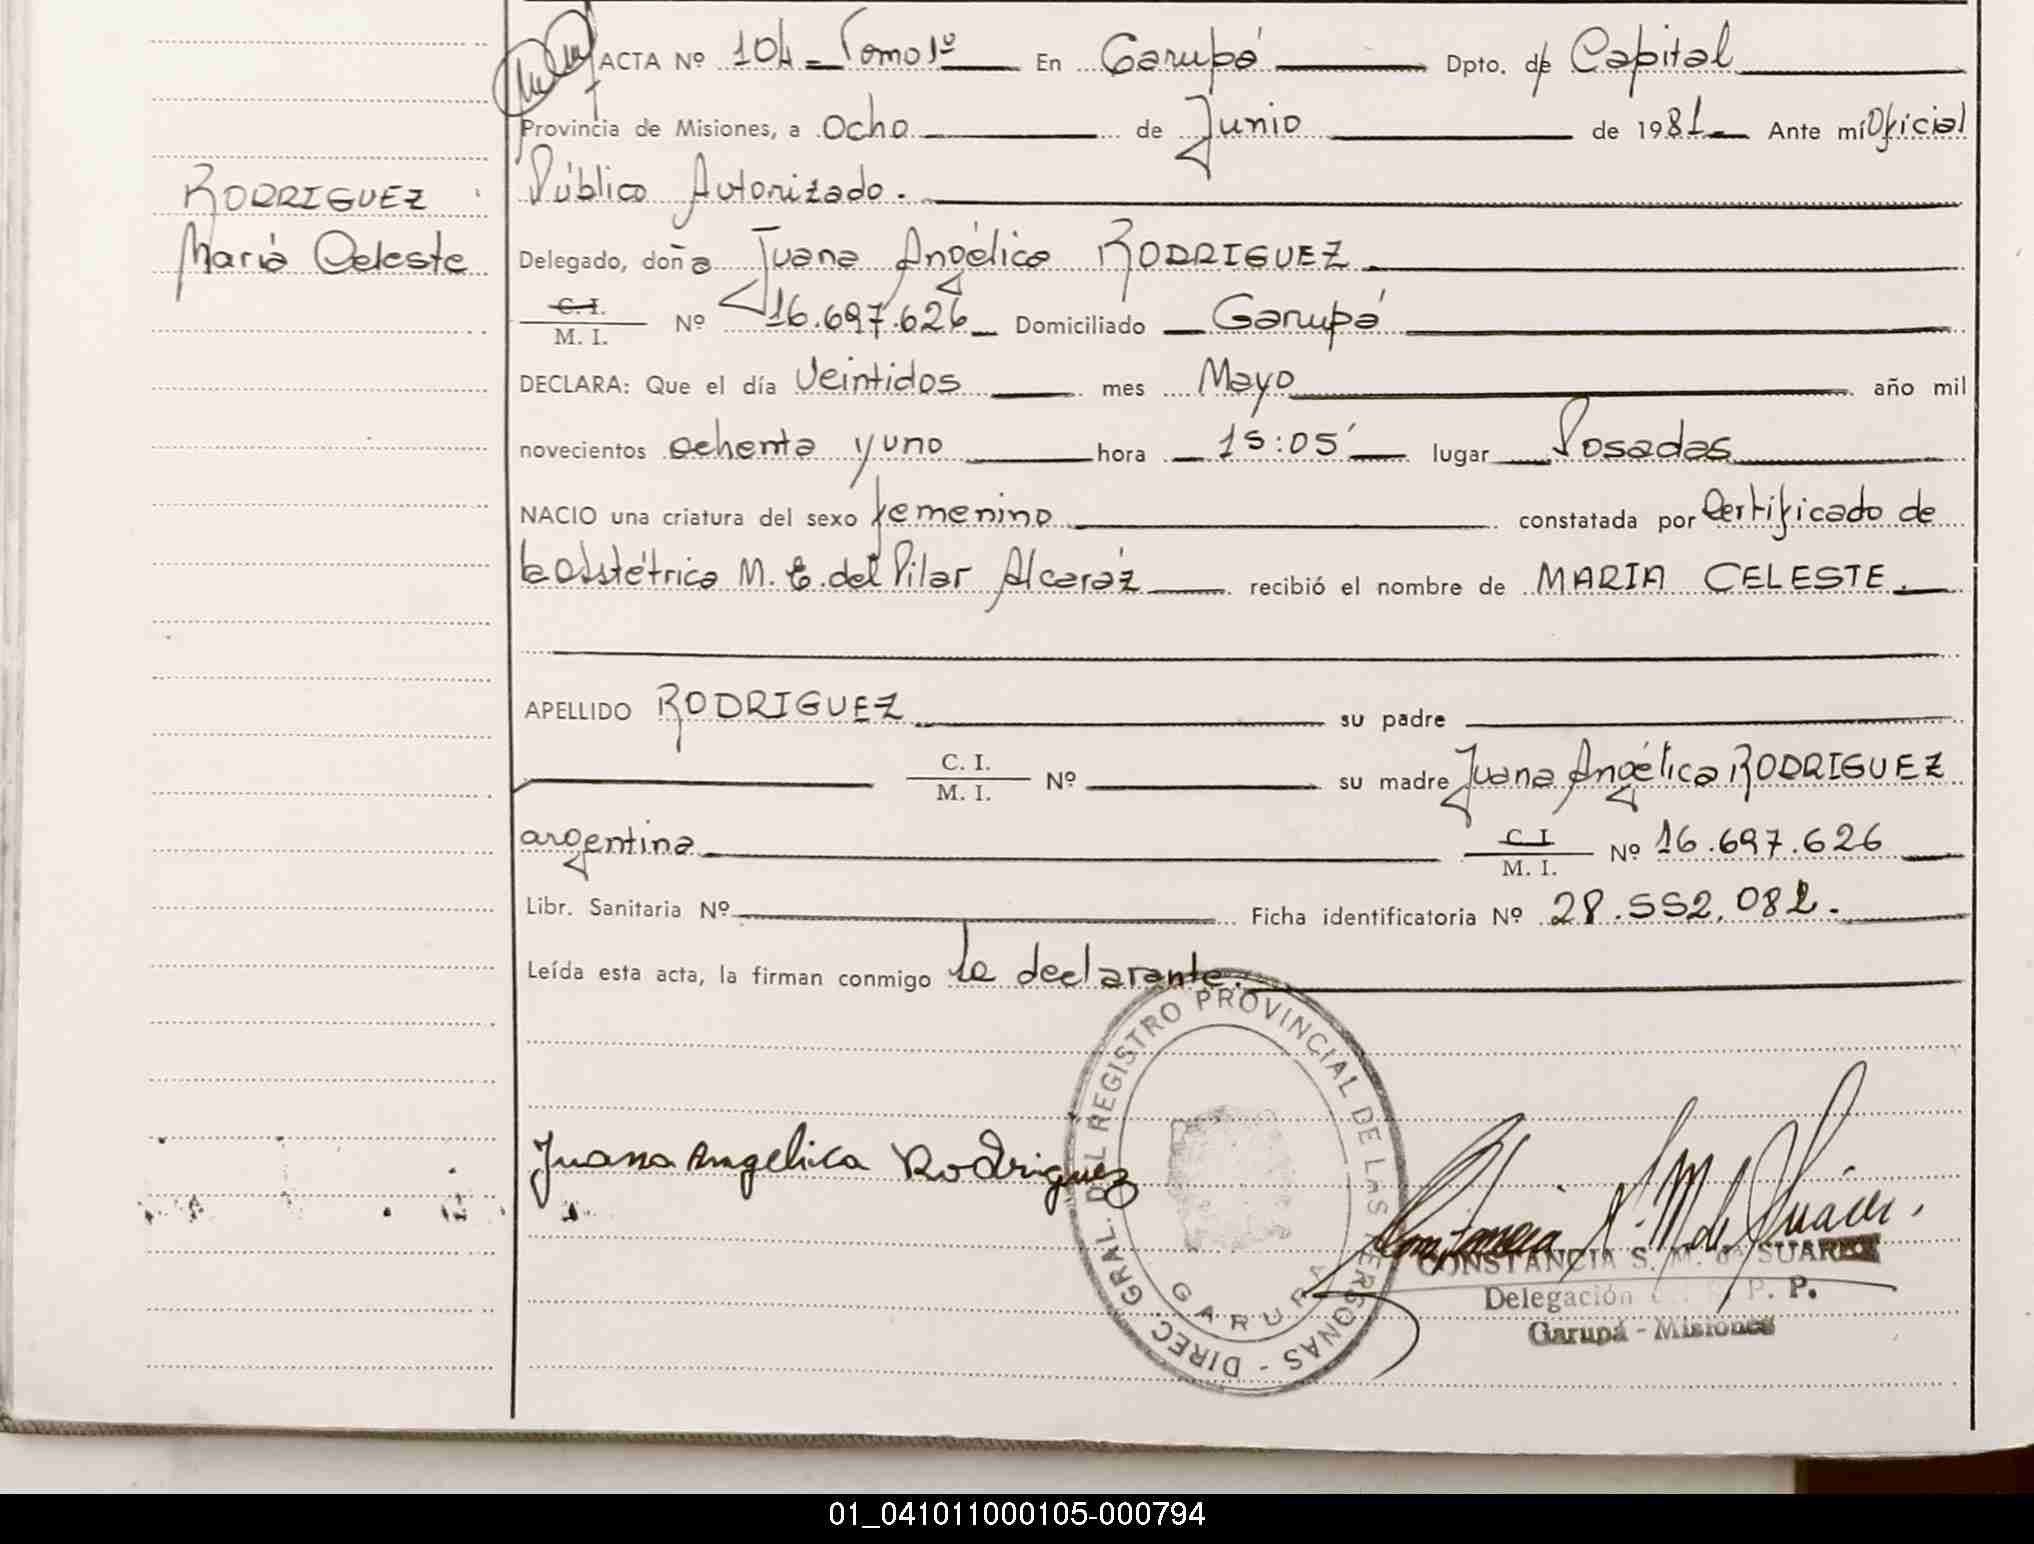 ACTA Nº 104 - Tomo 1º En Garupá Dpto. de Capital
Provincia de Misiones, a Ocho de Junio de 1981 Ante mí Oficial
Público Autorizado.
RODRIGUEZ
María Celeste
Delegado, doña Juana Angélica RODRIGUEZ
C. I.
M. I. Nº 16.697.626 Domiciliado Garupá
DECLARA: Que el día Veintidos mes Mayo año mil
novecientos ochenta y uno hora 15:05' lugar Posadas
NACIO una criatura del sexo femenino constatada por Certificado de
la Obstétrica M. C. del Pilar Alcaráz recibió el nombre de MARIA CELESTE.
APELLIDO RODRIGUEZ su padre
C. I.
M. I. Nº su madre Juana Angélica RODRIGUEZ
argentina C. I
M. I. Nº 16.697.626
Libr. Sanitaria Nº Ficha identificatoria Nº 28.552.082.
Leída esta acta, la firman conmigo la declarante.
DIREC. GRAL. DEL REGISTRO PROVINCIAL DE LAS PERSONAS -
GARUPA
Juana Angelica Rodriguez
Constancia S. M. de Suárez.
CONSTANCIA S. M. de SUAREZ
Delegación P. P.
Garupá - Misiones
01_041011000105-000794